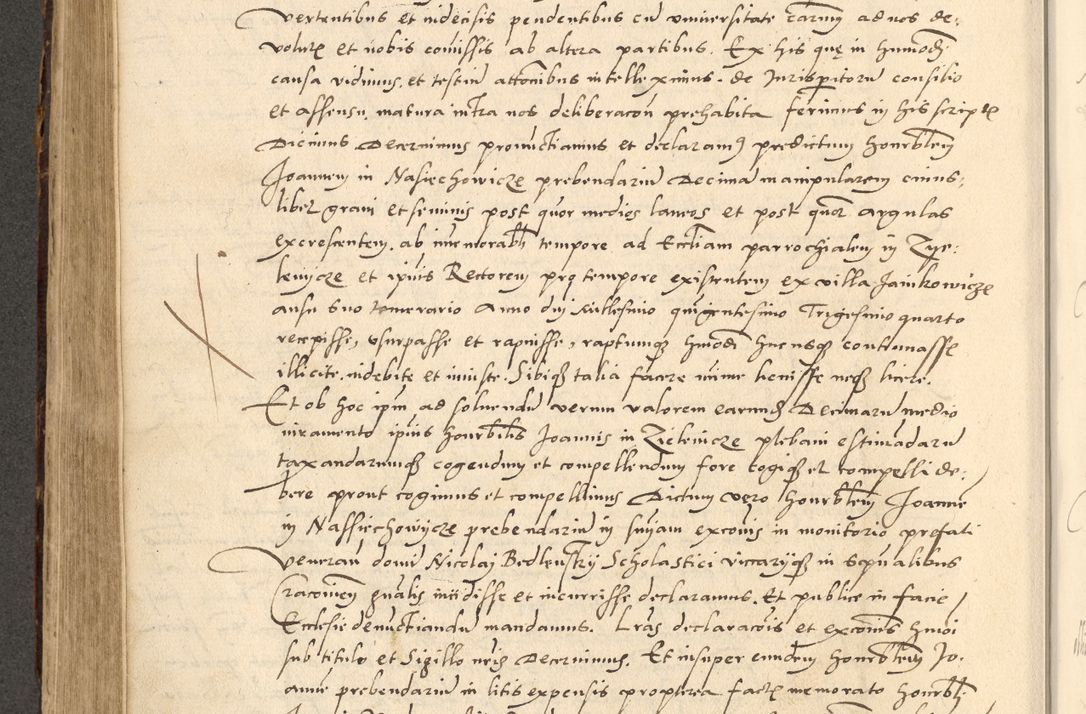 vertentibus et indecisis pendentibus cu universitate earum ad nos de-
volutis et nobis comissis ab altera partibus. Ex his que in humodi
causa vidimus et testiu attonibus intelleximus. de Jurisperitoru consilio
et assensu matura intra nos deliberacon prehabita ferimus in his scriptis
Dicimus Decernimus pronuctiamus et declaram9 predictum honrblem
Joannem in Nasiechowicze prebendariu Decima manipularem cuius-
libet grani et seminis post quor medios laneos et post quor argulas
excrescentem. ab imemorabli tempore ad Ecctiam parrochialem in Zye-
lenycze et ipius Rectorem pro tempore existentem ex villa Jankowicze
ausu suo temerario Anno dni Millesimo quigentesimo Trigesimo quarto
recepisse, usurpasse et rapuisse, raptumq hmodi hucusq continuasse
illicite. indebite et iniuste. Sibiq talia facere nime licuisse neq licere.
Et ob hoc ipm ad soluendu verum valorem earumd Decimaru medio
iuramento ipius honrbilis Joannis in Zielenicze plebani estimadaru
taxandarumq cogendum et compellendum fore cogiq et compelli de-
bere prout cogimus et compellimus Dictum vero honrblem Joanne
in Nassiechowycze prebendariu in snyam excois in monitorio prefati
veneran domi Nicolai Bedlensky Scholastici vicaryq in spualibus
Cracovien gnalis incidisse et incurrisse declaramus. Et publice in facie
Ecclesie denuctiandu mandamus. Lras declaracois et excois hmoi
sub titulo et Sigillo nris Decernimus. Et insuper eundem honrblem Jo-
anne prebendariu in litis expensis propterea factis memorato honrbli